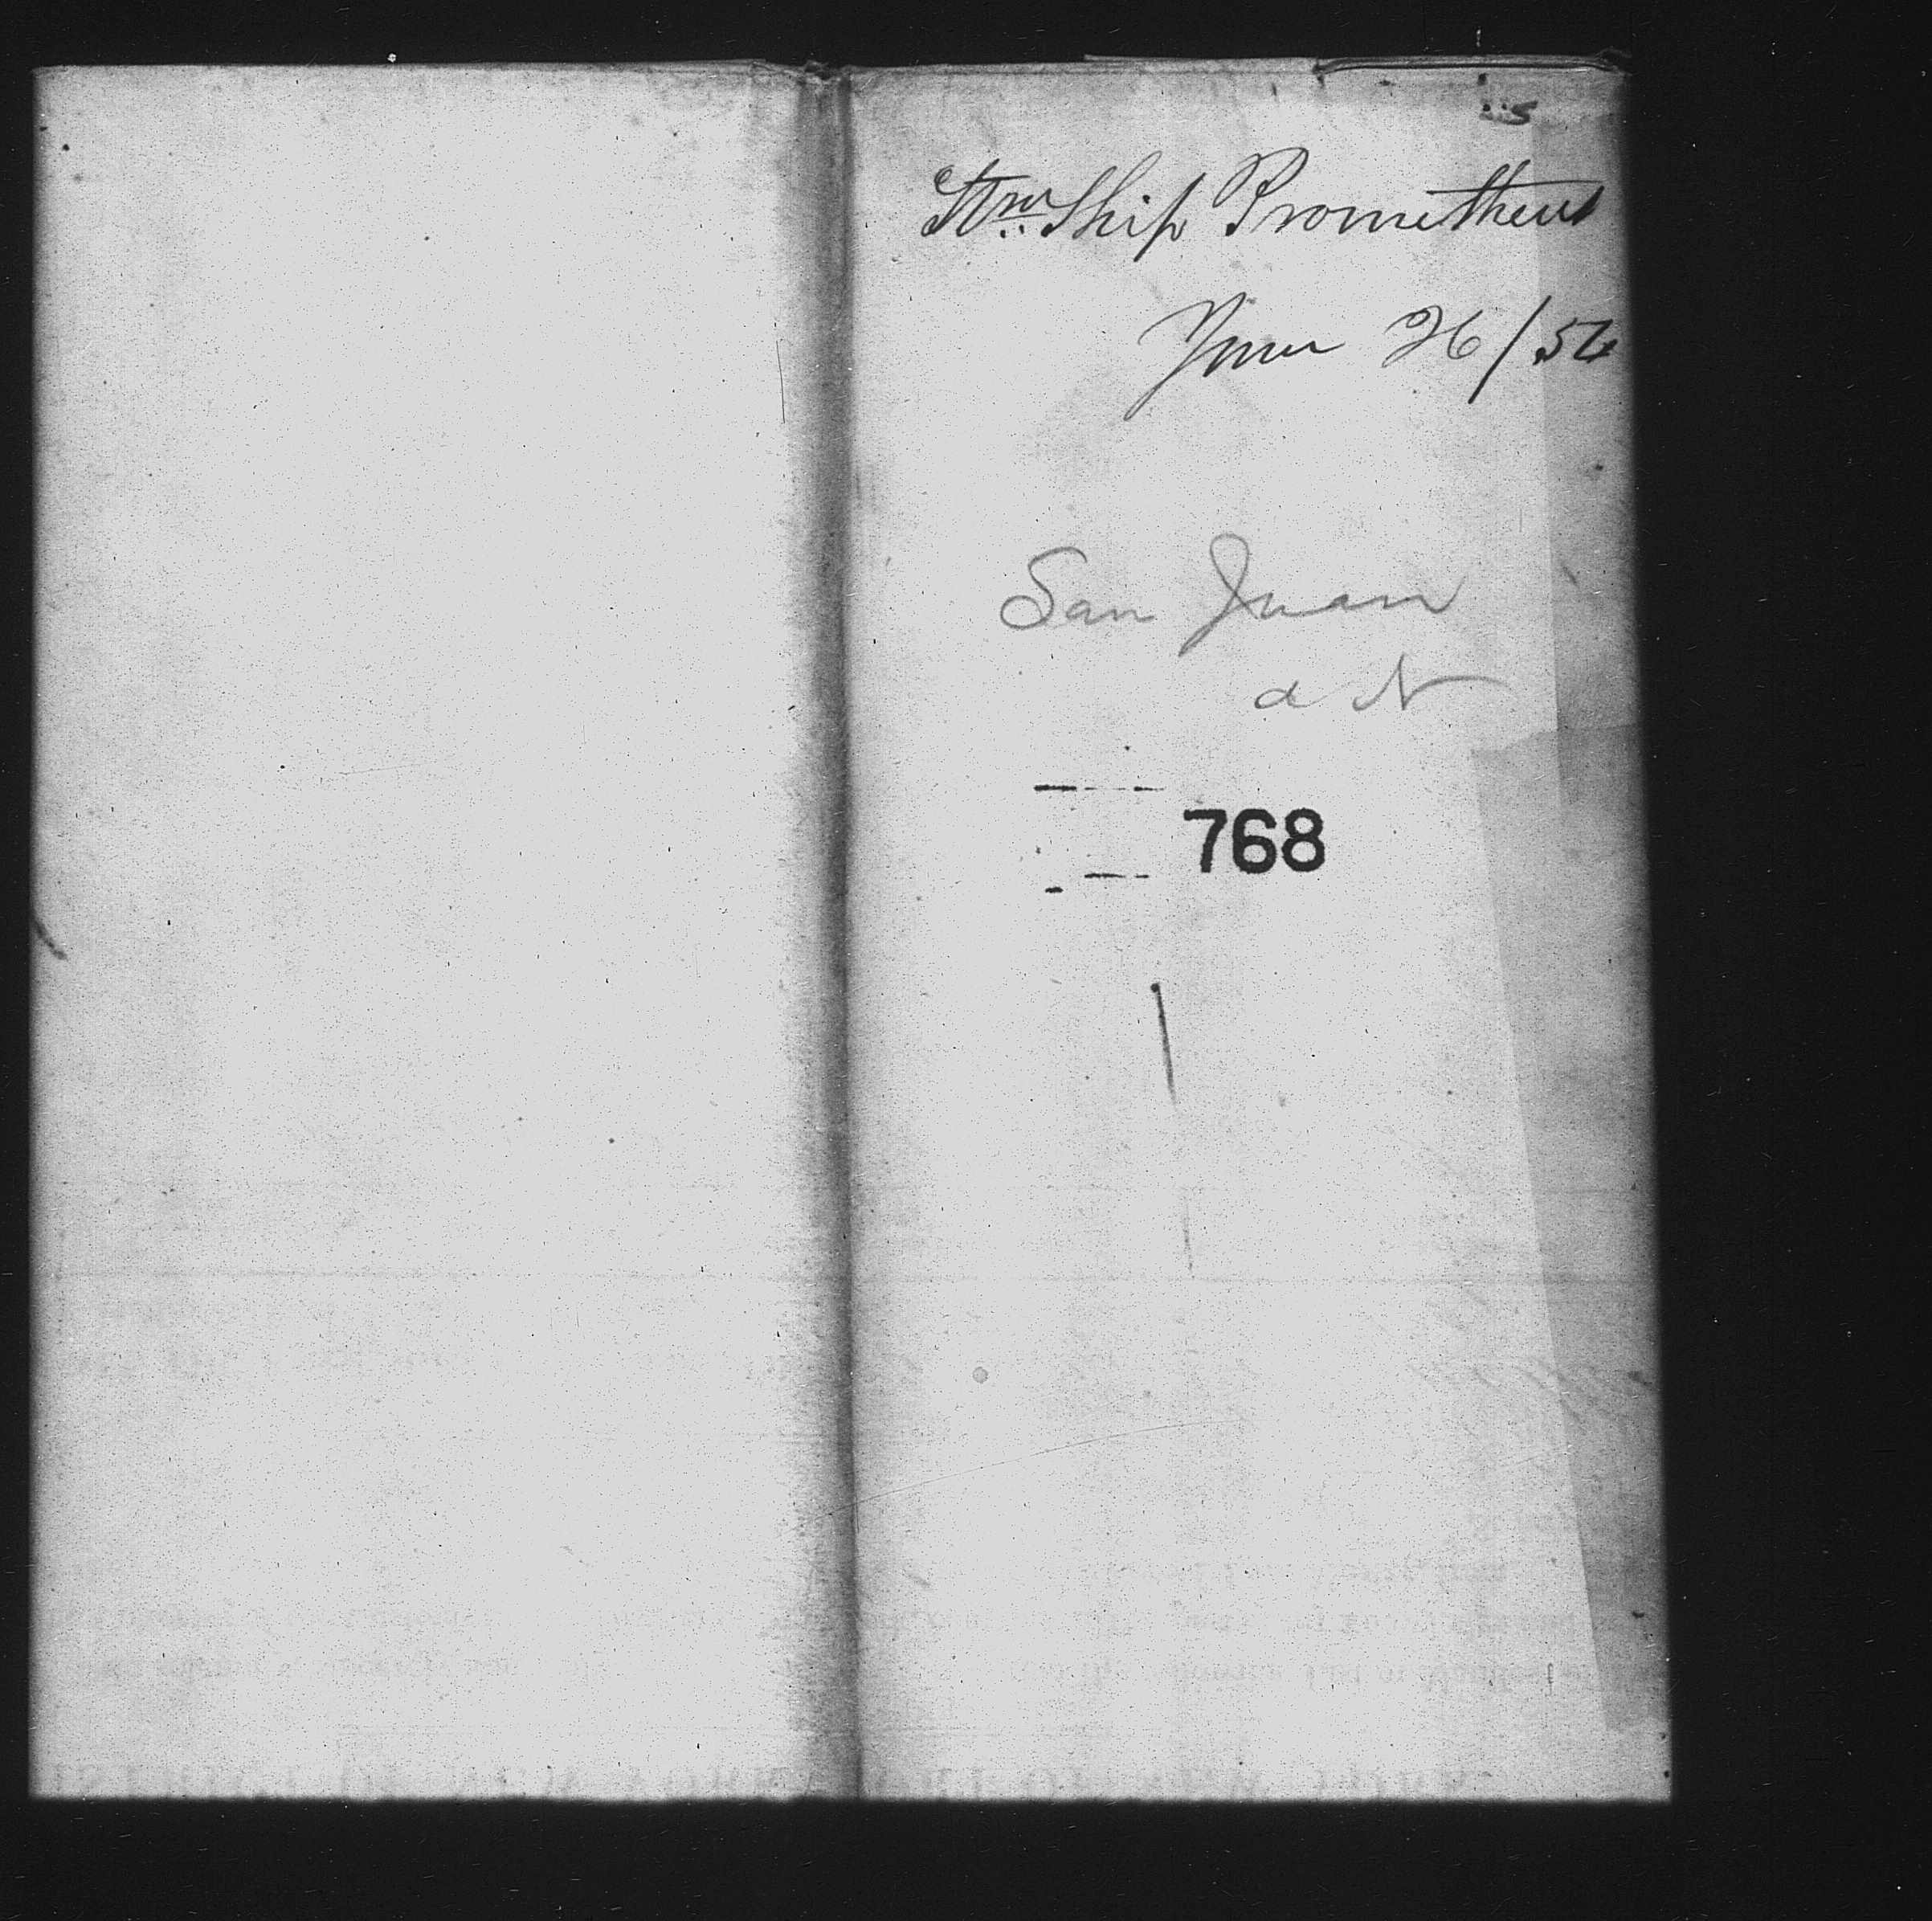 Stm Ship Prometheus
June 26/54
San Juan
d N
768